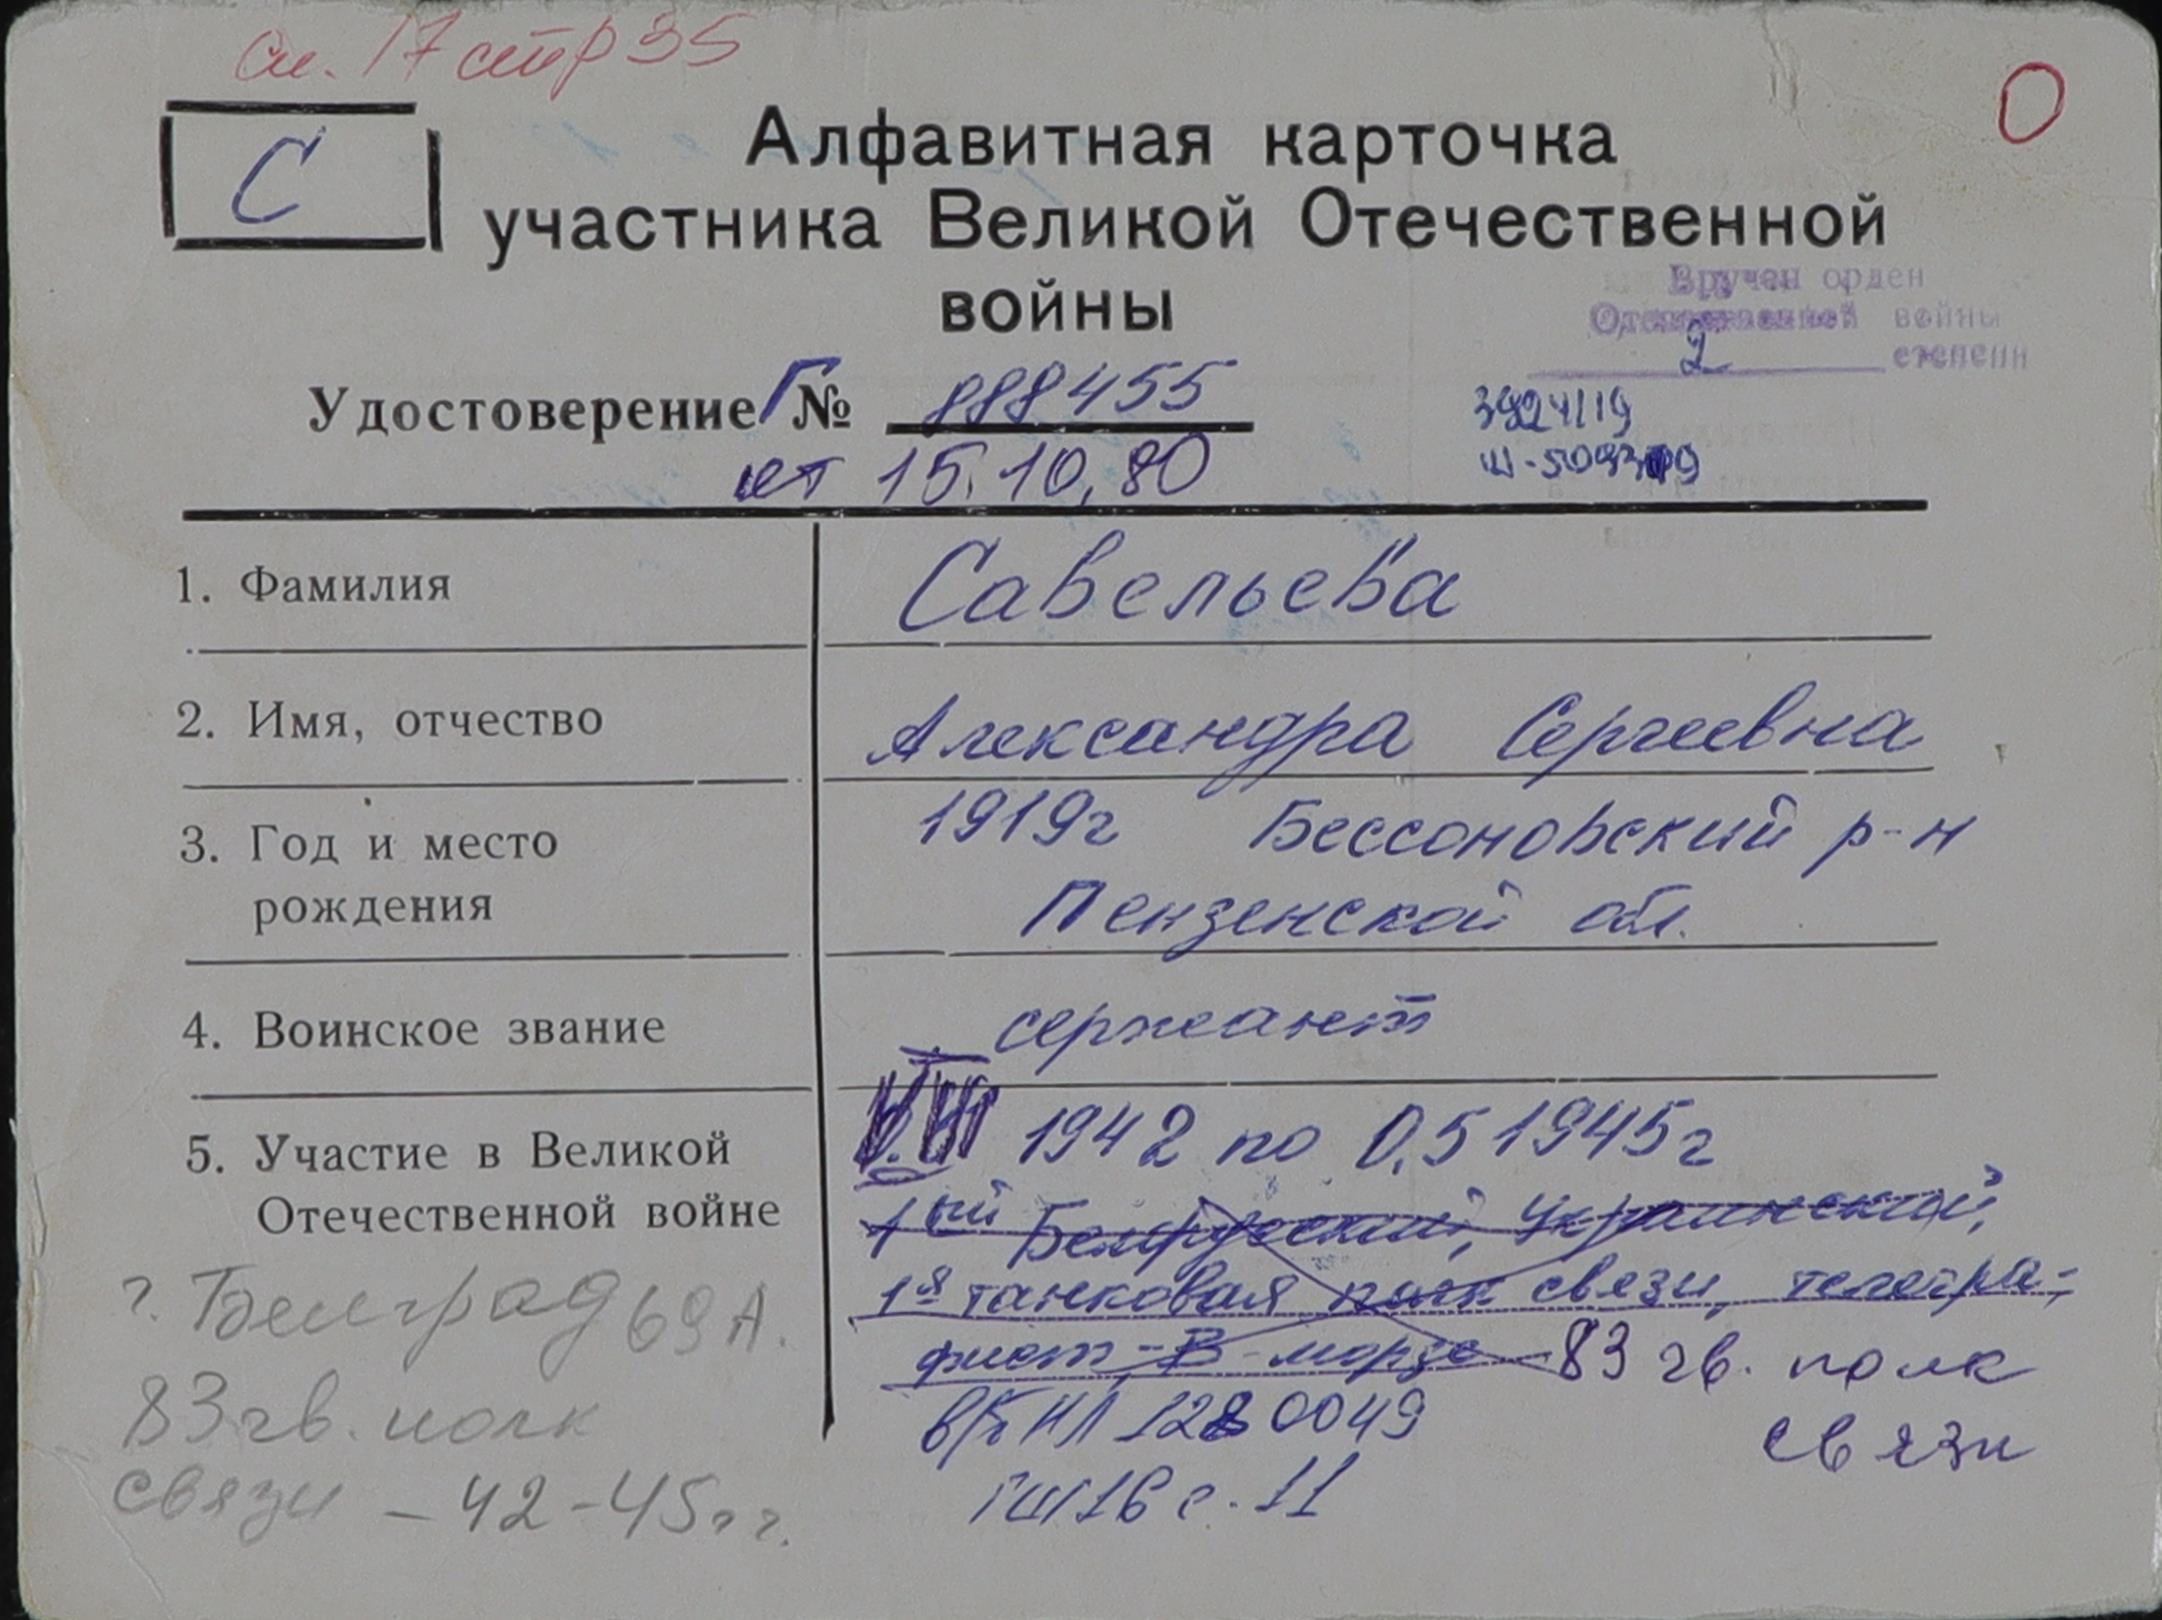 см. 17 стр 35
О
С
Алфавитная карточка
участника Великой Отечественной
войны
Вручен орден
Отечественной войны
2 степени
Удостоверение Г № 888455
от 15.10.80
3924119
1. Фамилия Савельева
2. Имя, отчество Александра Сергеевна
3. Год и место 1919г Бессоновский р-н
рождения Пензенской обл.
4. Воинское звание сержант
5. Участие в Великой 1942 по 0.5 1945г
Отечественной войне 1ый Белорусский, Украинский,
1я танковая полк связи, телегра-
фист - В - морзе - 83 гв. полк
связи
в/б НЛ 128 0049
ГШ 16 с. 11
г. Белград 69 А.
83 гв. полк
связи - 42-45 гг.